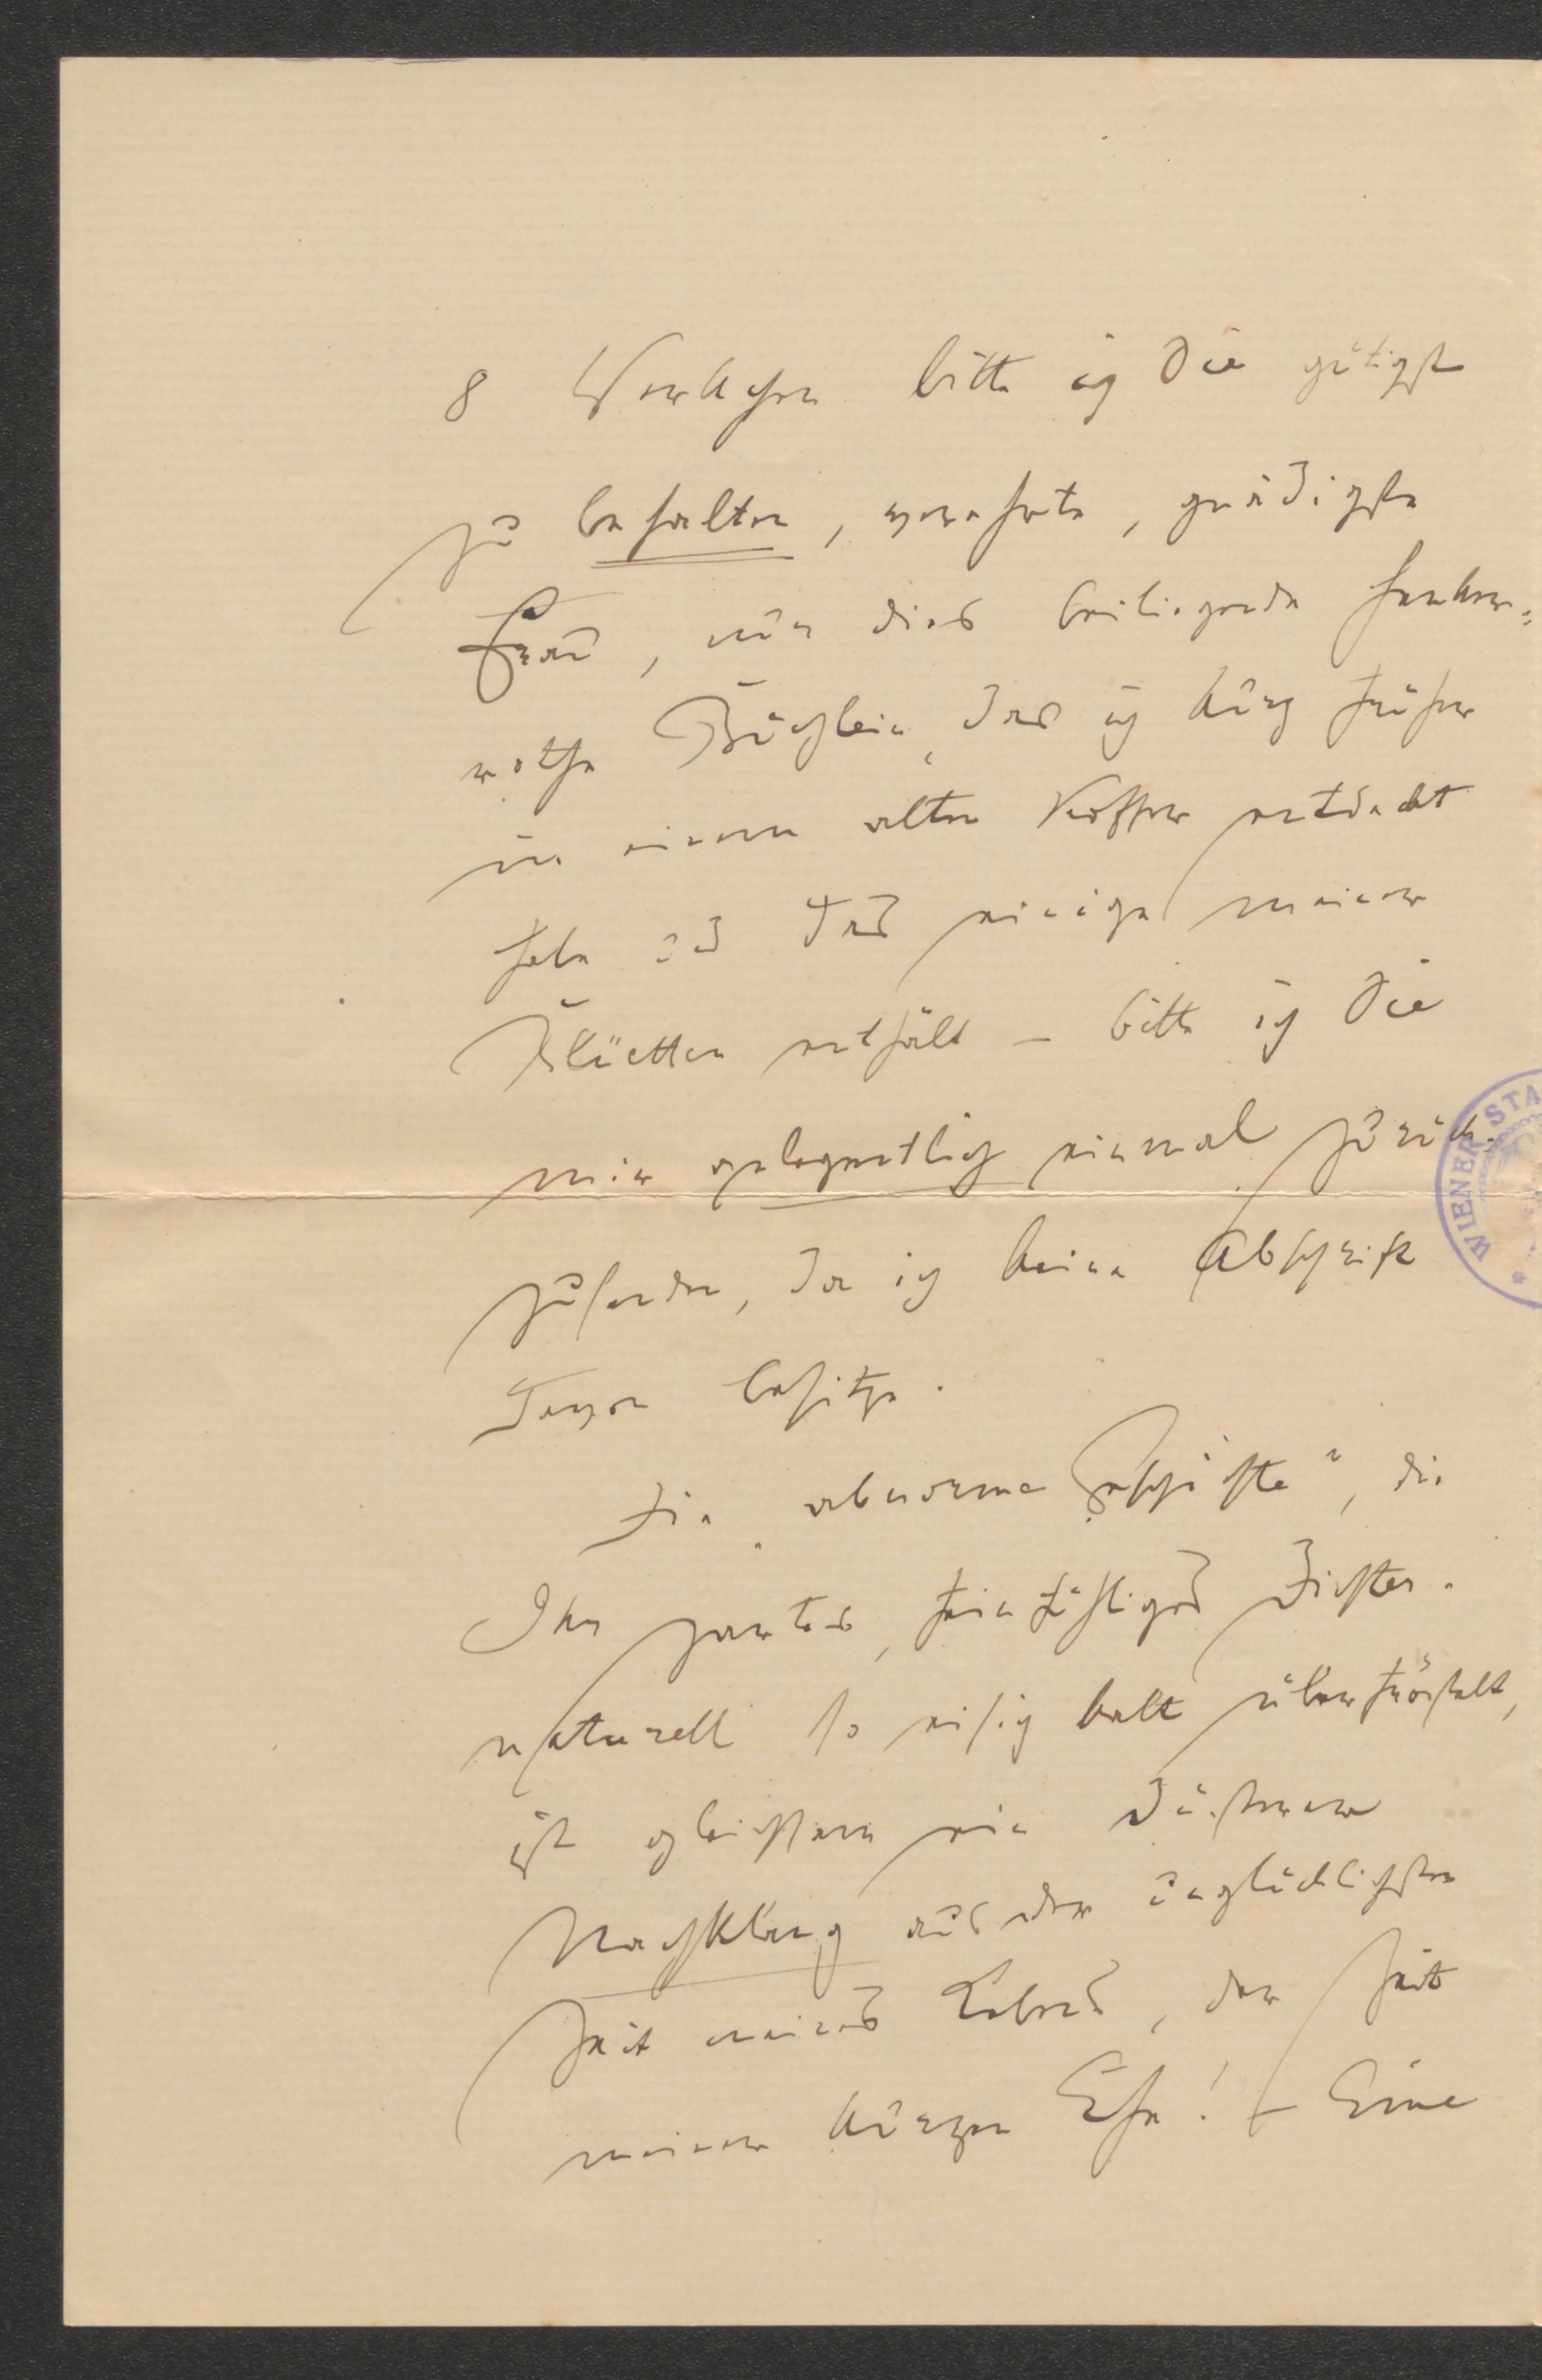 8 Werkchen bitte ich Sie gütigst
zu behalten, verehrte, gnädigste
Frau, nur dies beiliegende
rothe Büchlein, das ich kürz früher
in einem alten Koffer entdeckt
habe u d das einige meiner
Blüetten enthält – bitte ich Sie
mir gelegentlich einmal zurück
zusenden, da ich keine Abschrift
davon besitze.
Die „abnorme Geschichte“, die
Ihr zartes, feinfühliges Dichter-
naturell so eisig kalt überfröstelt,
ist gleichsam ein düsterer
Nachklang aus der unglücklichsten
Zeit meines Lebens, der Zeit
meiner kurzen Ehe! – Eine
WIENER STA